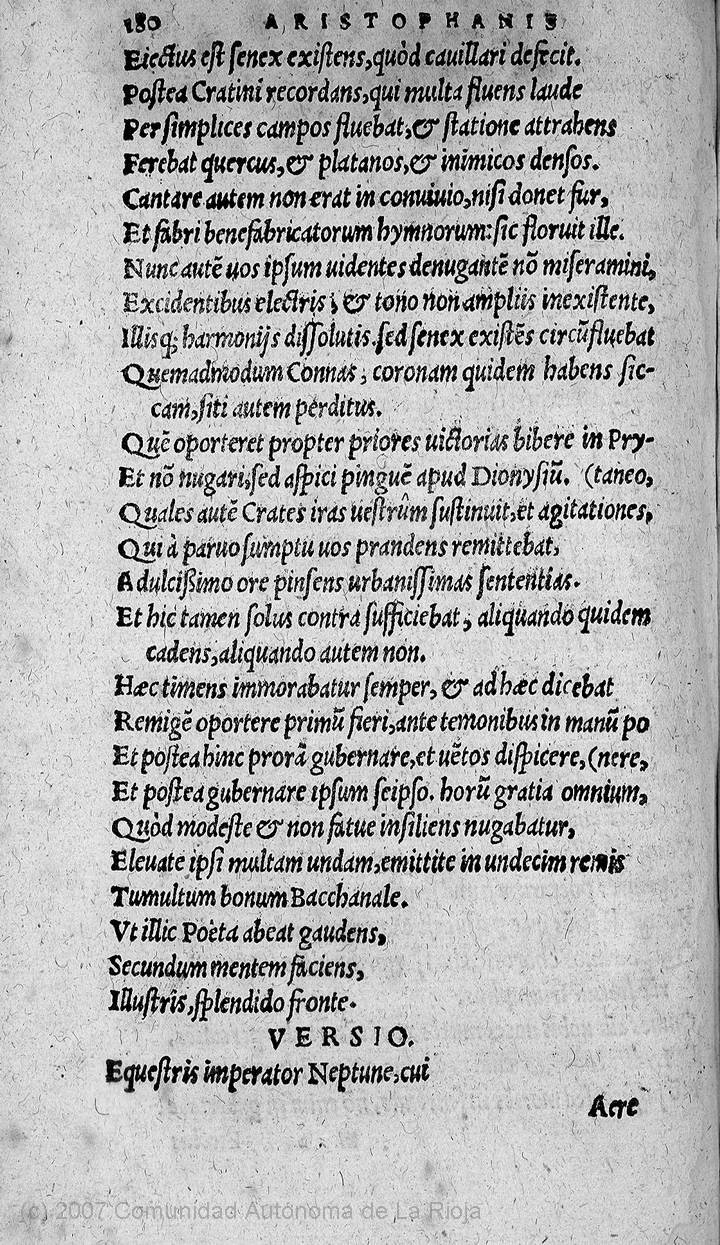 180 ARISTOPHANIS
Eiectus est senex existens, quòd cauillari defecit.
Postea Cratini recordans, qui multa fluens laude
Per simplices campos fluebat, & statione attrahens
Ferebat quercus, & platanos, & inimicos densos.
Cantare autem non erat in conuiuio, nisi donet fur,
Et fabri benefabricatorum hymnorum: sic floruit ille.
Nunc autē uos ipsum uidentes denugantē nō miseramini,
Excidentibus electris, & tono non ampliis inexistente,
Illisq; harmonijs dissolutis. sed senex existēs circūfluebat
Quemadmodum Connas, coronam quidem habens sic-
cam, siti autem perditus.
Quē oporteret propter priores uictorias bibere in Pry-
Et nō nugari, sed aspici pinguē apud Dionysiū. (taneo,
Quales autē Crates iras uestrûm sustinuit, et agitationes,
Qui à paruo sumptu uos prandens remittebat,
A dulcißimo ore pinsens urbanissimas sententias.
Et hic tamen solus contra sufficiebat, aliquando quidem
cadens, aliquando autem non.
Hæc timens immorabatur semper, & ad hæc dicebat
Remigē oportere primū fieri, ante temonibus in manū po
Et postea hinc prorā gubernare, et uētos dispicere, (nere,
Et postea gubernare ipsum seipso. horū gratia omnium,
Quòd modeste & non fatue insiliens nugabatur,
Eleuate ipsi multam undam, emittite in undecim remis
Tumultum bonum Bacchanale.
Vt illic Poëta abeat gaudens,
Secundum mentem faciens,
Illustris, splendido fronte.
VERSIO.
Equestris imperator Neptune, cui
Aere
(c) 2007 Comunidad Autónoma de La Rioja